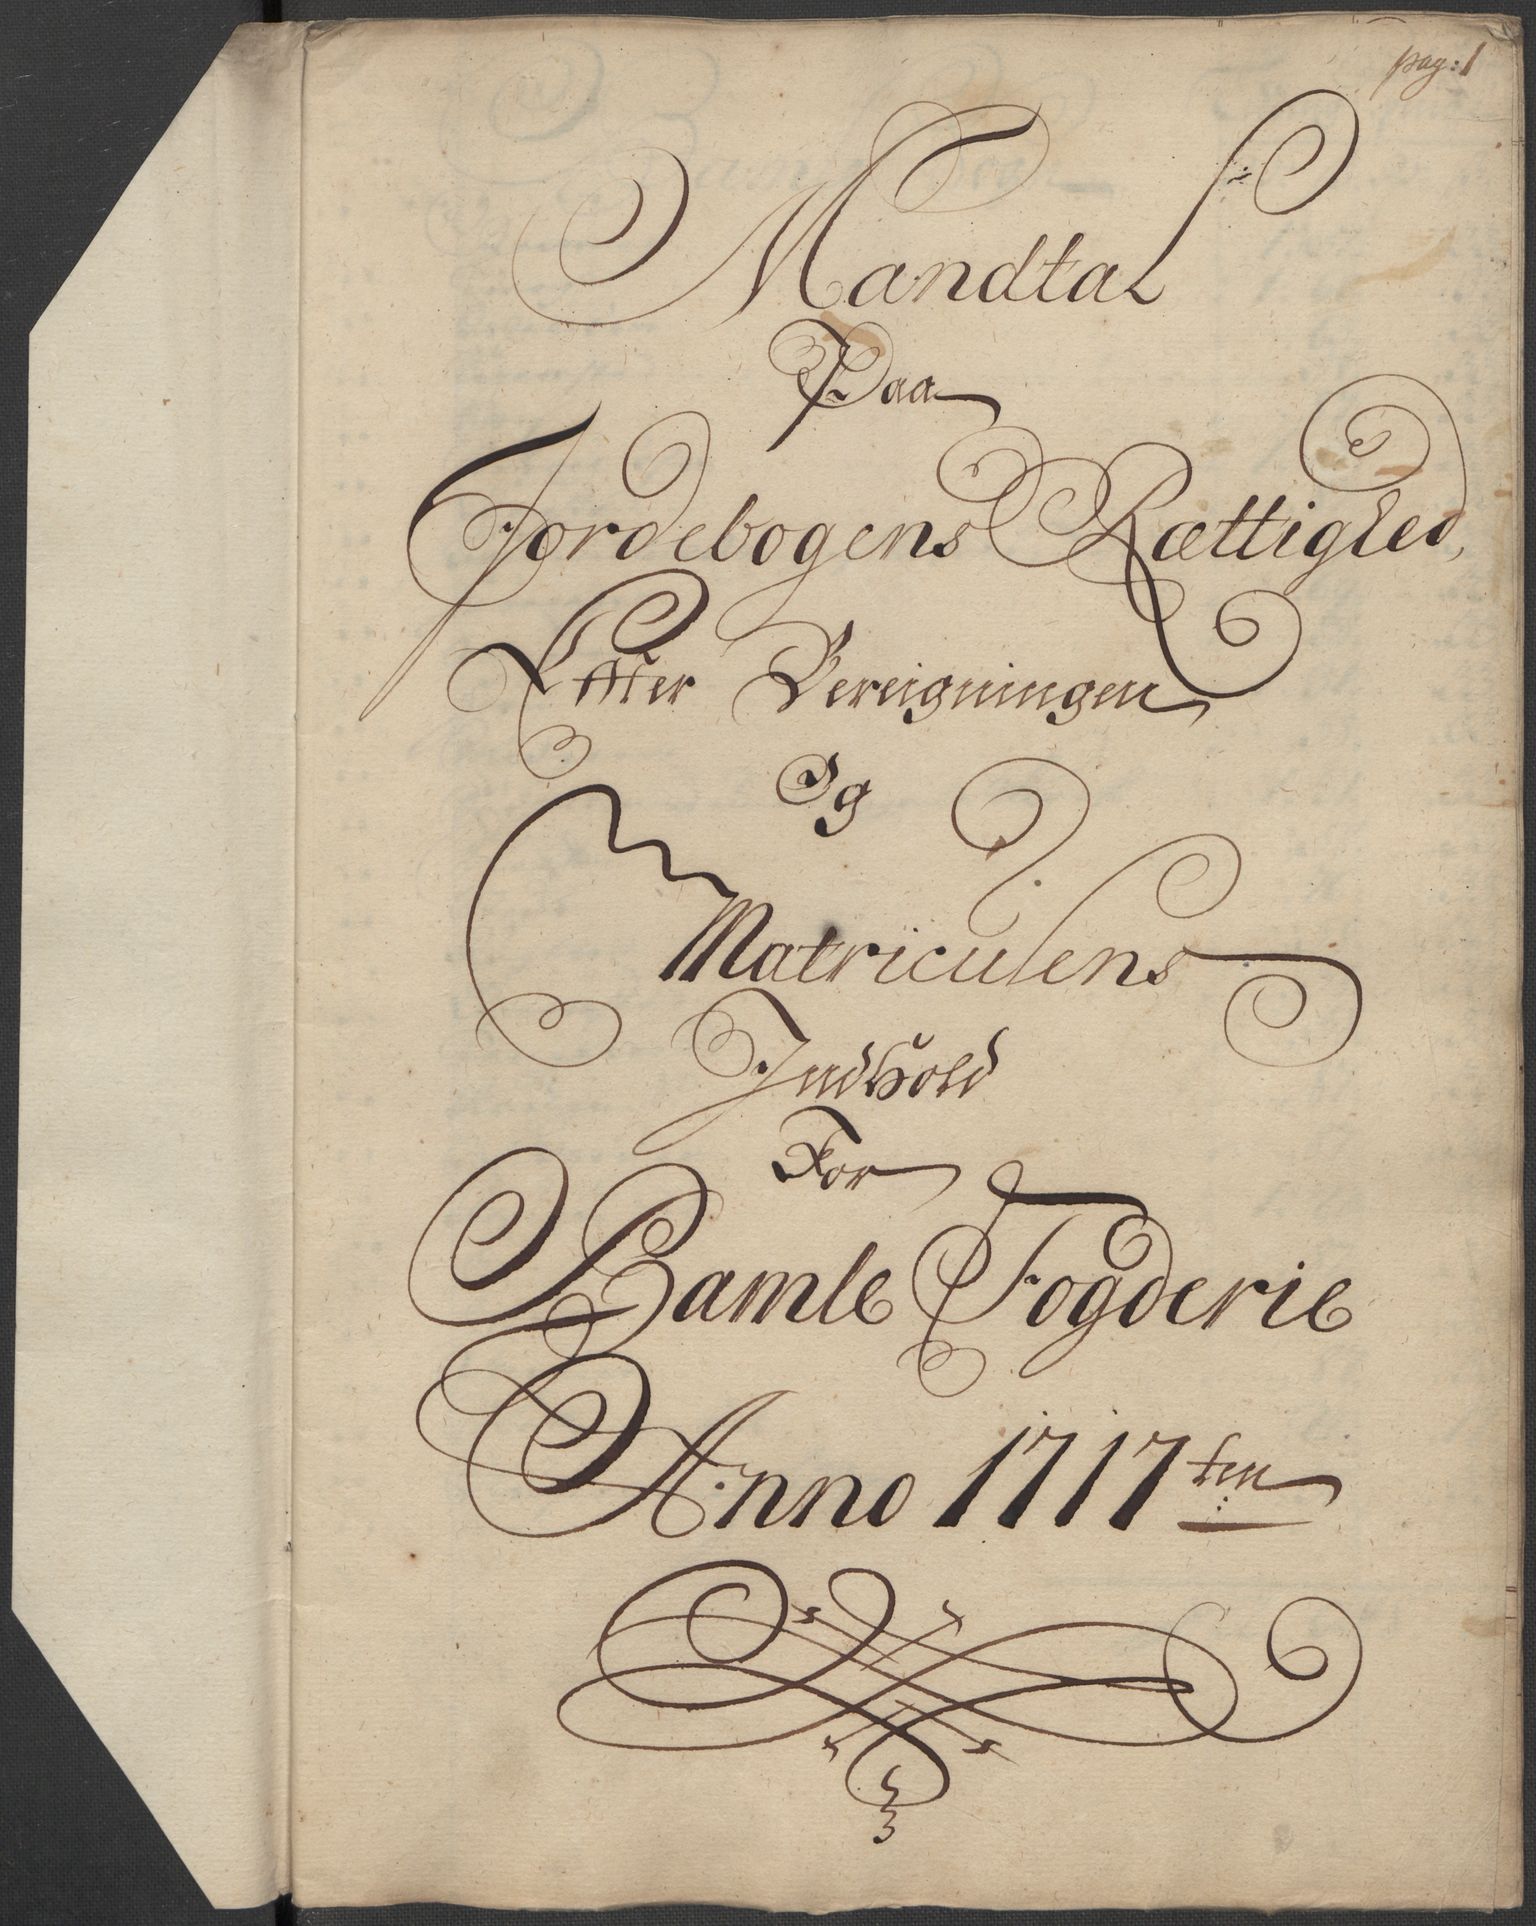 pag: 1
Mandtal
Paa
Jordebogens Rættighed,
Efter Bereigningen
Og
Matriculens
Indhold
For
Bamle Fogderie
Anno 1717 ten